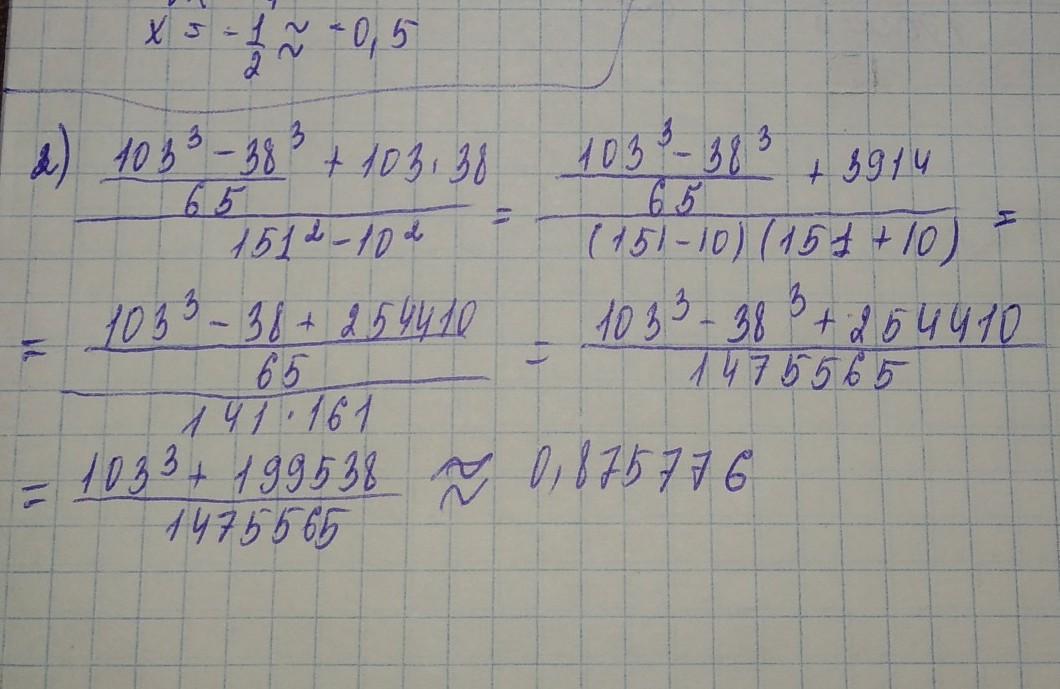 x = -1/2 ≈ -0,5
2) ((103³ - 38³)/65 + 103·38)/(151² - 10²) = ((103³ - 38³)/65 + 3914)/((151-10)(151+10)) =
= ((103³ - 38 + 254410)/65)/(141·161) = (103³ - 38³ + 254410)/1475565
= (103³ + 199538)/1475565 ≈ 0,875776